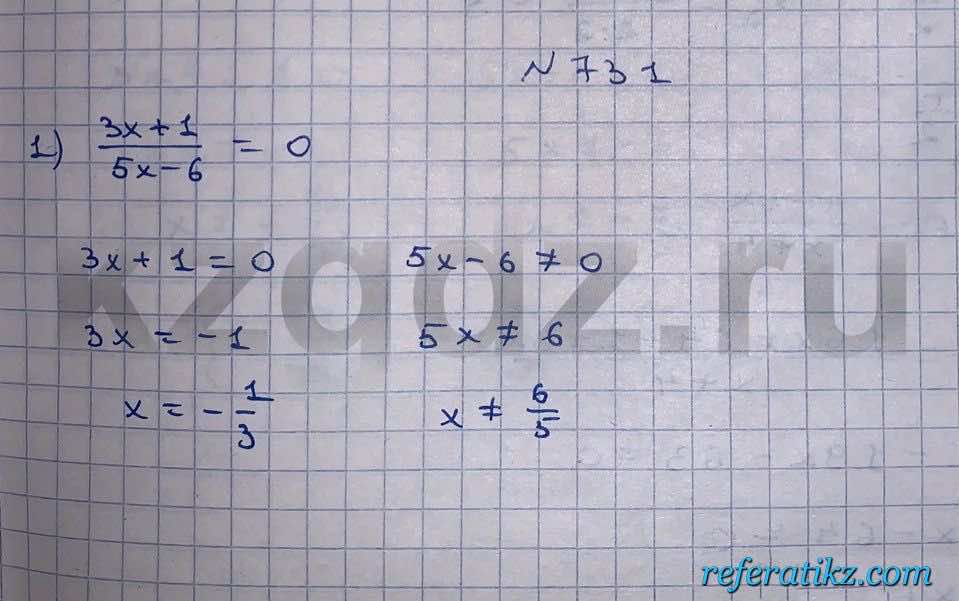 № 731
1) (3x + 1)/(5x - 6) = 0
3x + 1 = 0    5x - 6 ≠ 0
3x = -1    5x ≠ 6
x = -1/3    x ≠ 6/5
kzgdz.ru
referatikz.com